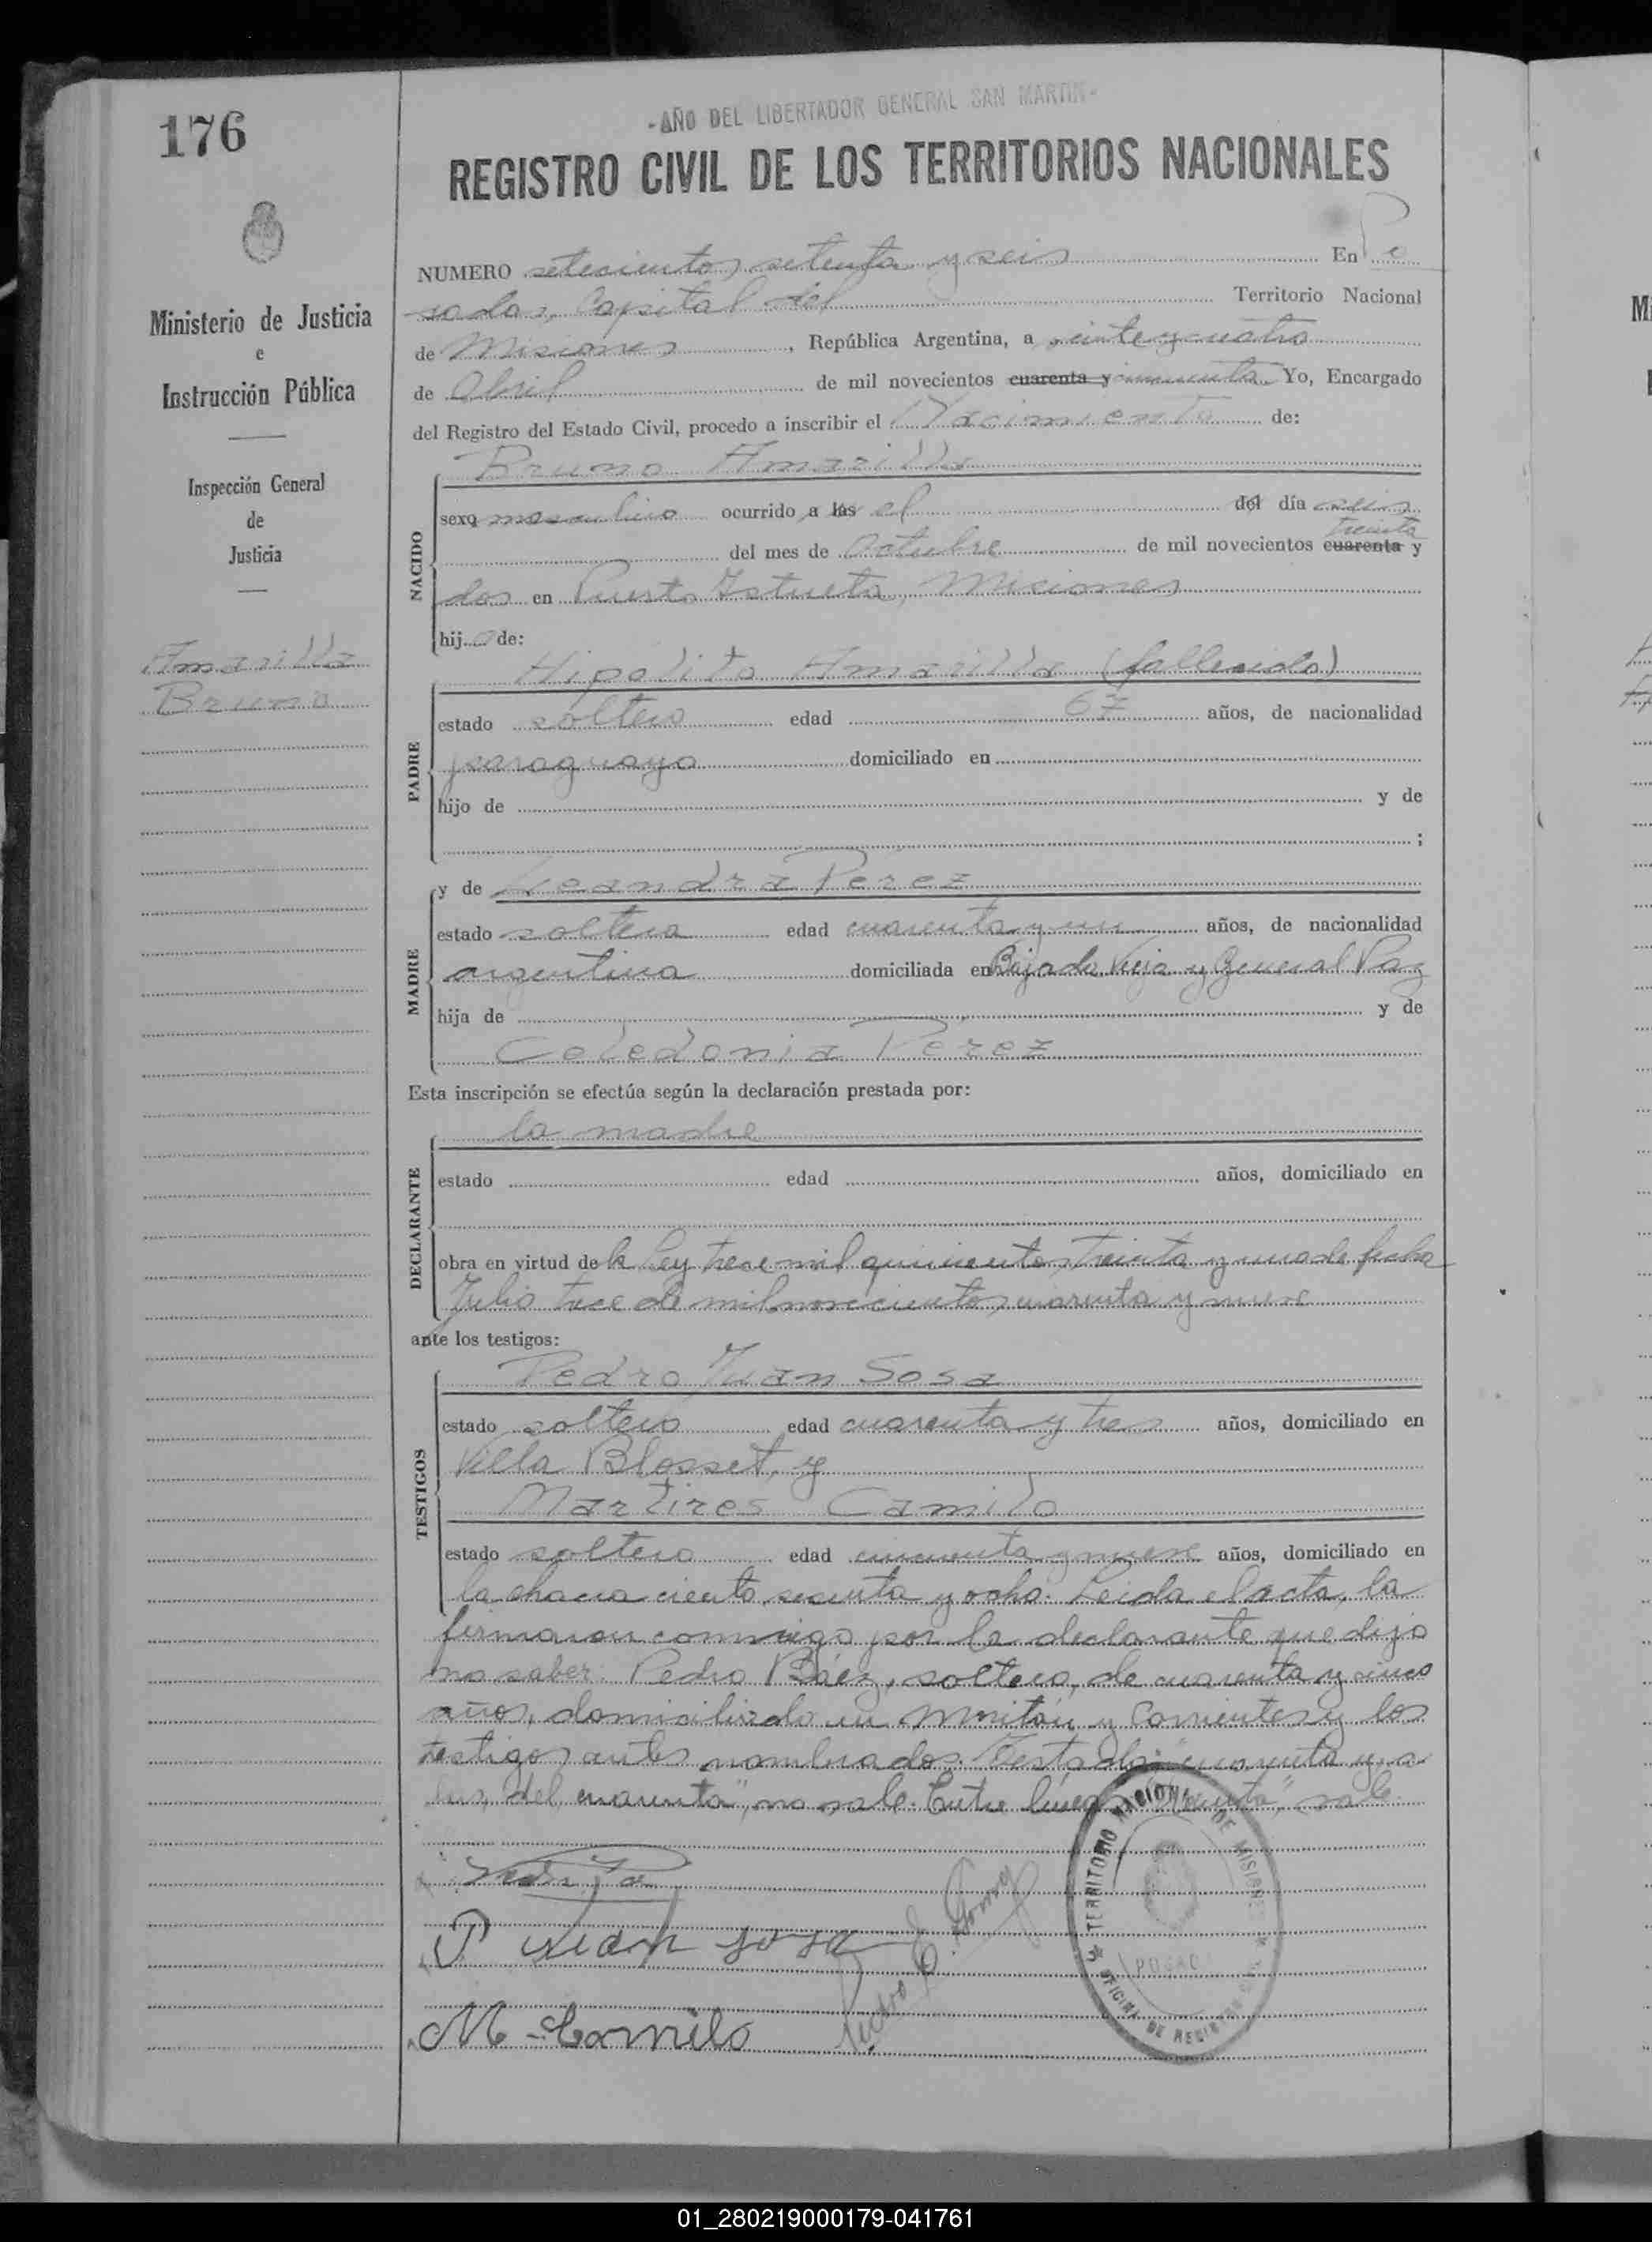 176
-AÑO DEL LIBERTADOR GENERAL SAN MARTIN-
REGISTRO CIVIL DE LOS TERRITORIOS NACIONALES
Ministerio de Justicia
e
Instrucción Pública
Inspección General
de
Justicia
Amarilla
Bruno
NUMERO setecientos setenta y seis En Po
sadas, Capital del Territorio Nacional
de Misiones, República Argentina, a veinte y cuatro
de Abril de mil novecientos cuarenta y cincuenta Yo, Encargado
del Registro del Estado Civil, procedo a inscribir el Nacimiento de:
NACIDO
Bruno Amarilla
sexo masculino ocurrido a las el del día seis
treinta
del mes de Octubre de mil novecientos cuarenta y
dos en Puerto Istueta, Misiones
hijo de:
PADRE
Hipólito Amarilla (fallecido)
estado soltero edad 67 años, de nacionalidad
paraguaya domiciliado en
hijo de y de
;
MADRE
y de Leandra Pérez
estado soltera edad cuarenta y un años, de nacionalidad
argentina domiciliada en Bajada Vieja y General Paz
hija de y de
Celedonia Pérez
Esta inscripción se efectúa según la declaración prestada por:
DECLARANTE
la madre
estado edad años, domiciliado en
obra en virtud de la ley trece mil quinientos treinta y uno de fecha
Julio trece de mil novecientos cuarenta y nueve
ante los testigos:
TESTIGOS
Pedro Juan Sosa
estado soltero edad cuarenta y tres años, domiciliado en
Villa Blosset, y
Martires Camilo
estado soltero edad cincuenta y nueve años, domiciliado en
la chacra ciento sesenta y ocho. Leida el acta, la
firmaron conmigo por la declarante que dijo
no saber: Pedro Báez, soltero, de cuarenta y cinco
años, domiciliado en Moritán y Corrientes y los
testigos antes nombrados. Testado: "cuarenta y, a
las, del, cuarenta", no vale. Entre líneas "treinta", vale.
P Juan Sosa
M Camilo
TERRITORIO NACIONAL DE MISIONES
OFICINA DE REGISTRO CIVIL
POSADAS
01_280219000179-041761